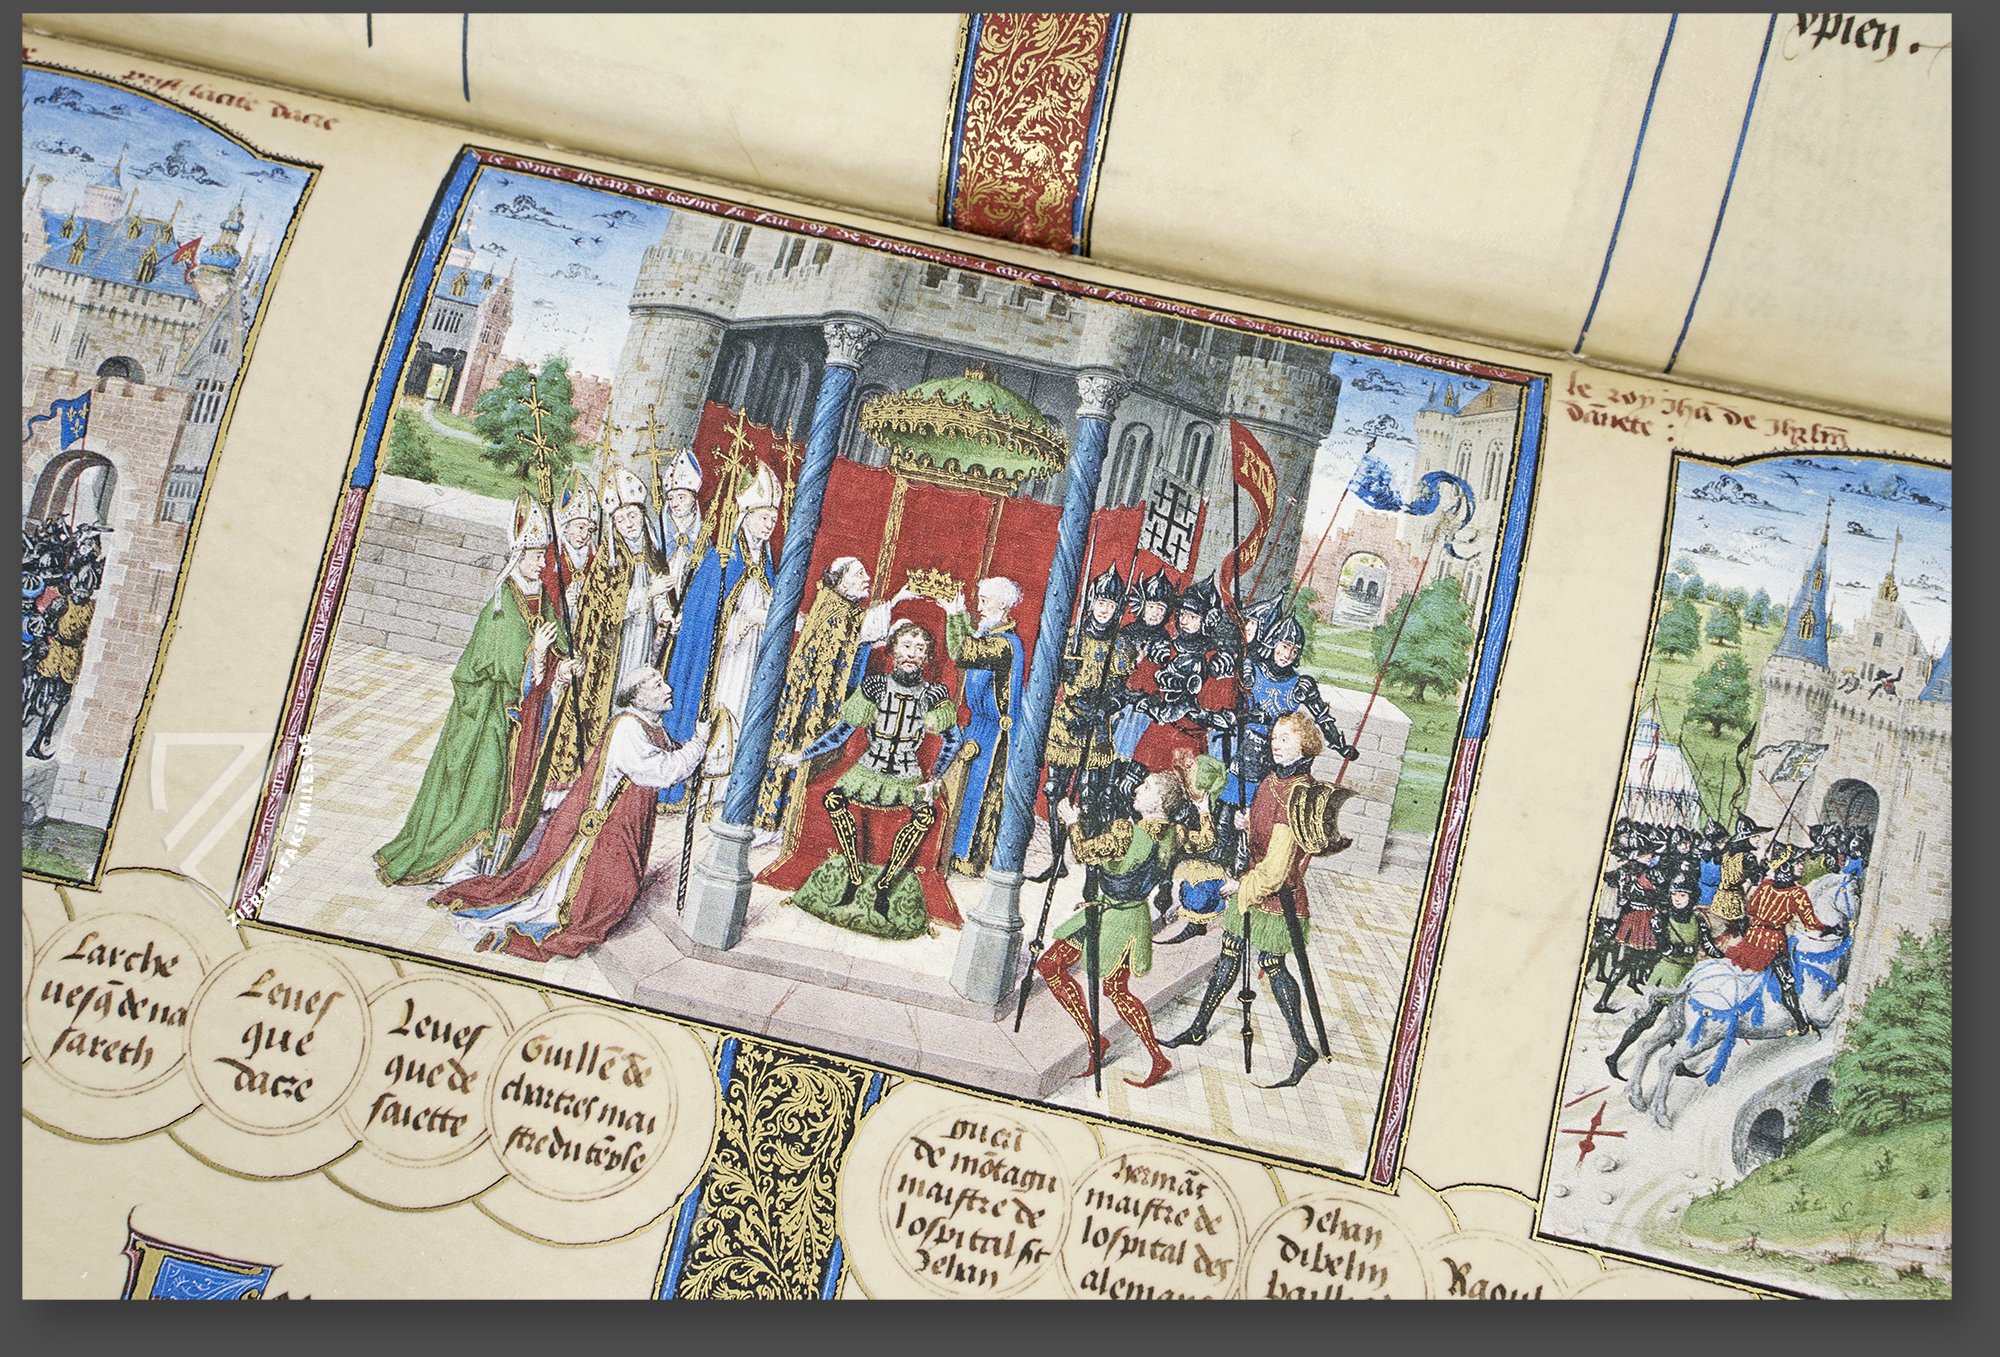 ypien .
le conte Jhean de bresne fu fait roy de Jherusalem a cause de sa feme marie fille du marquis de monferrare
le roy Jhā de Jhrlm̄
dācte :
Larche
uesq̄ de na
sareth
Leues
que
dacre
Leues
que de
saiette
Guillē de
chartres mai
stre du tēple
de mōtagu
maistre de
lospital st
Jehan
hermāt
maistre de
lospital des
alemans
Jehan
dibelin
Raoul
ZIEREIS-FAKSIMILES.DE